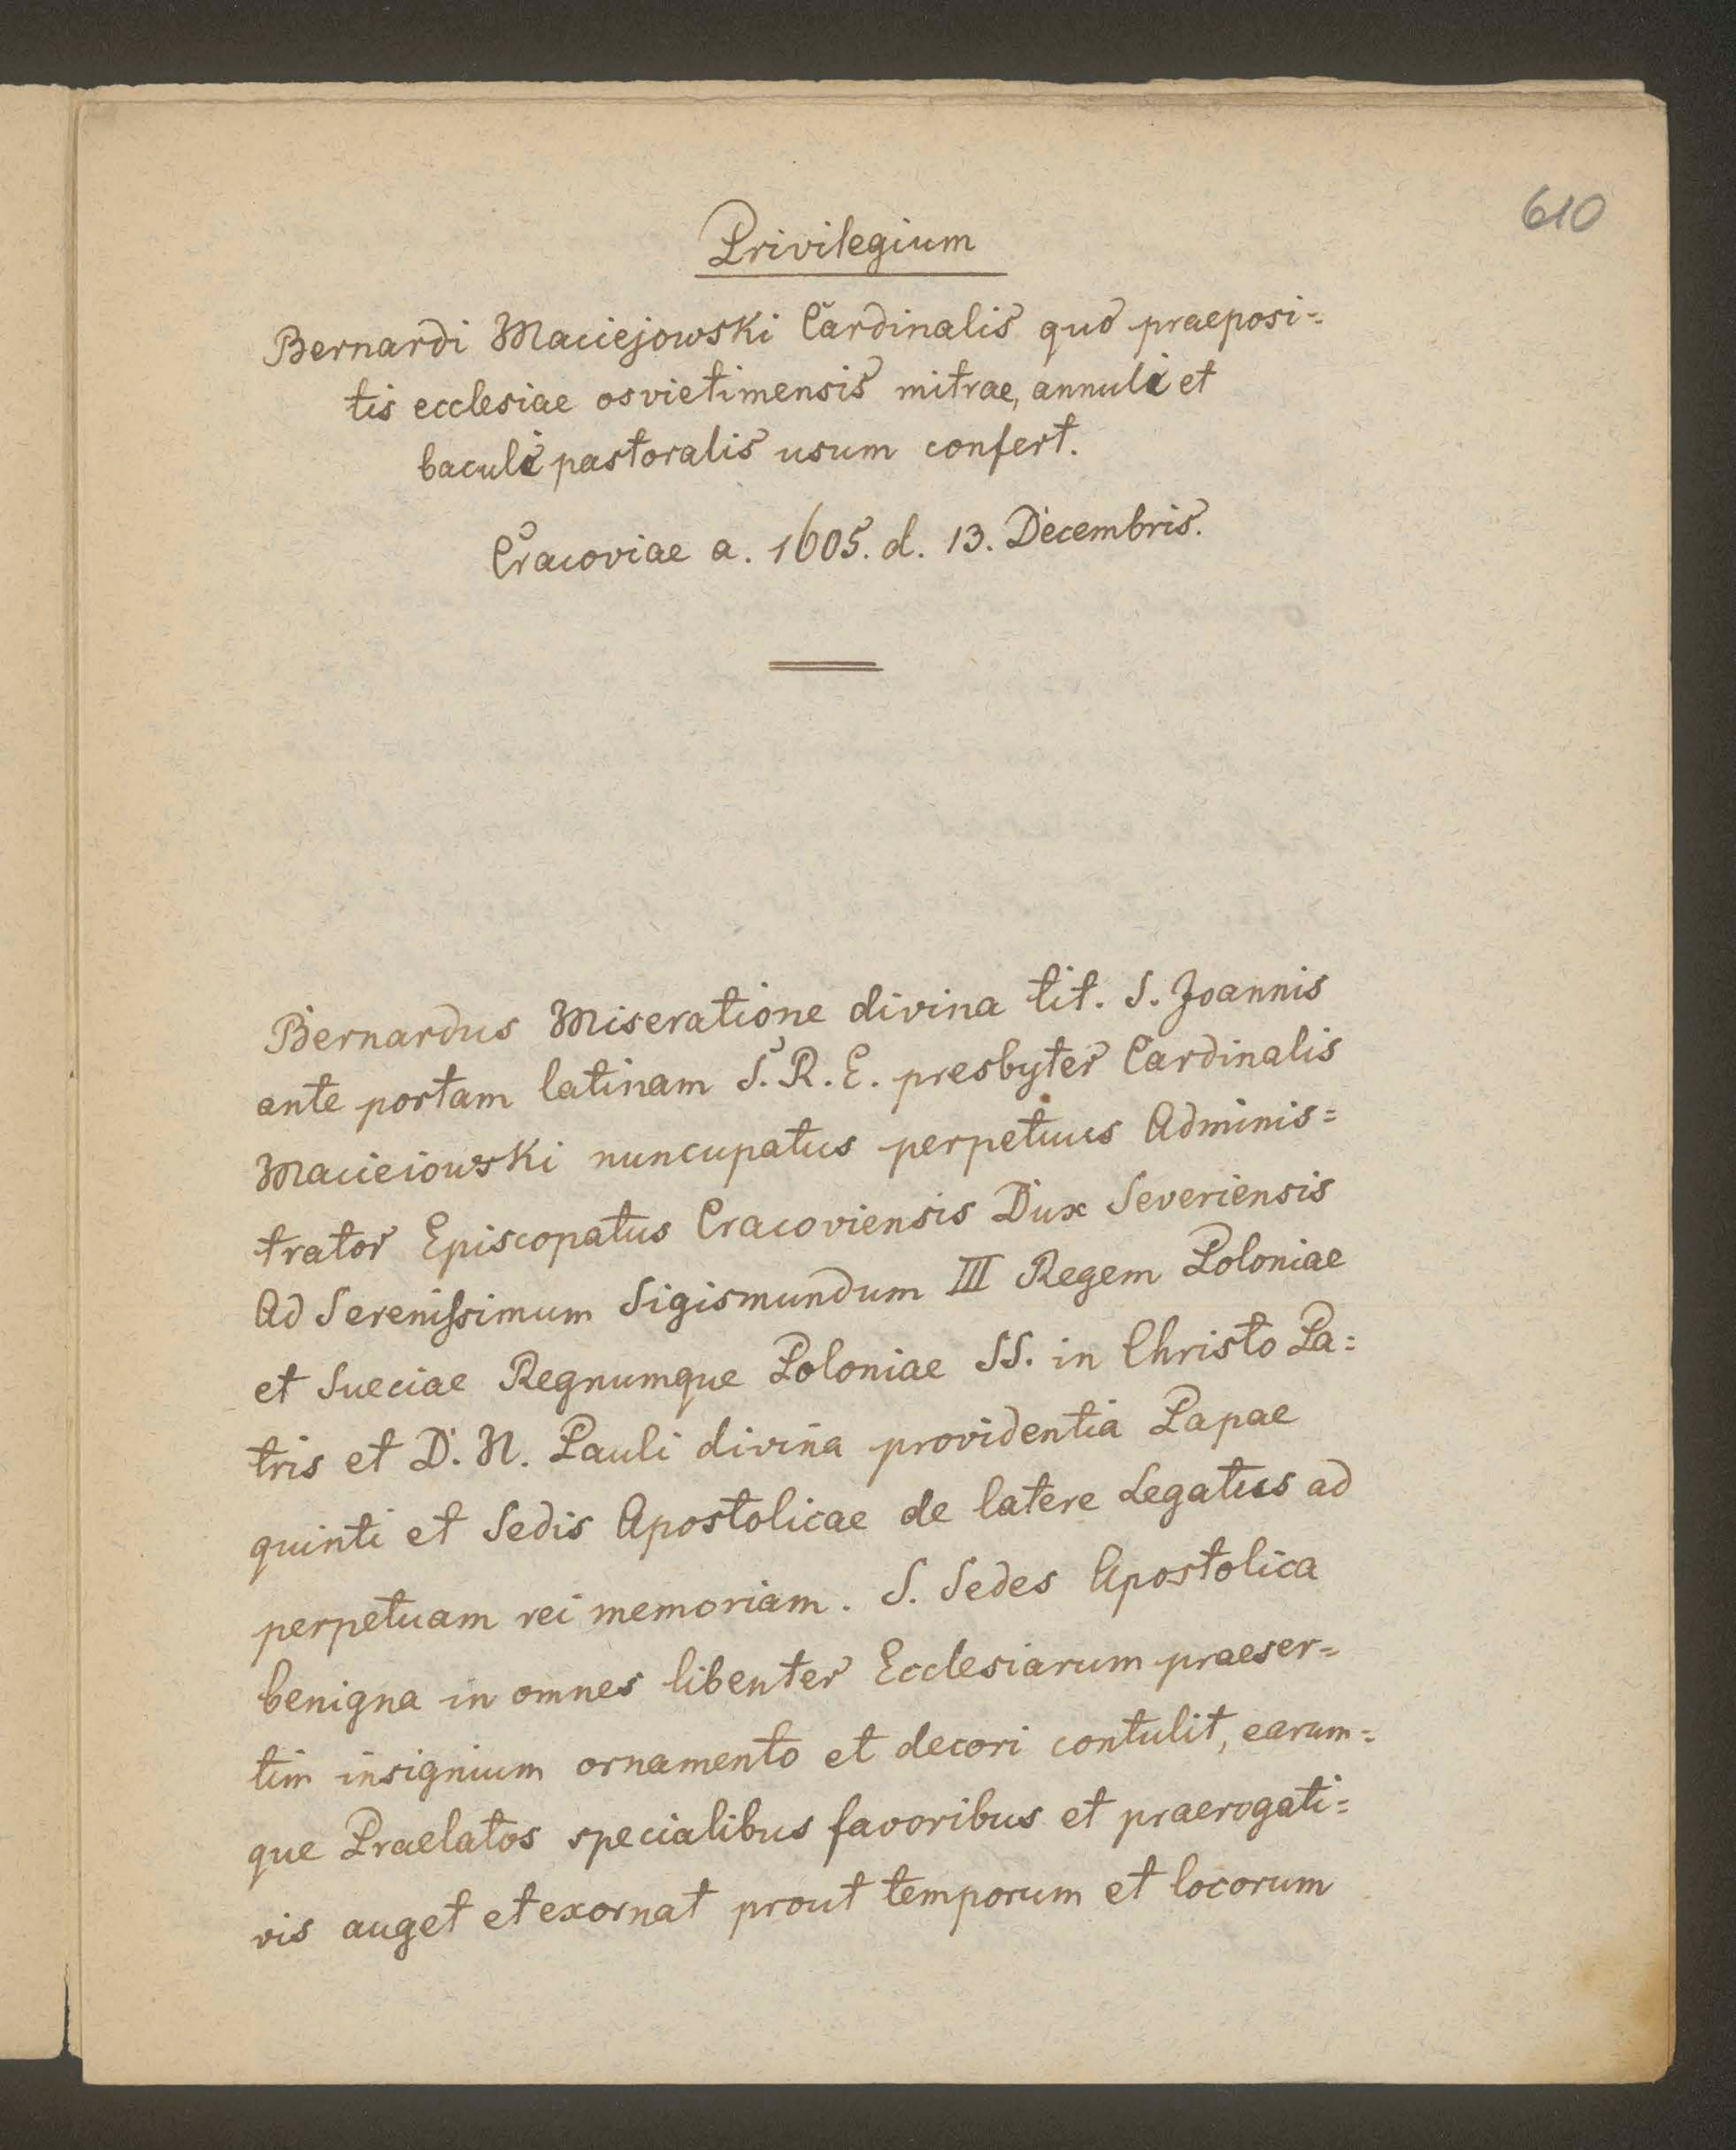 610
Privilegium
Bernardi Maciejowski Cardinalis quo praeposi=
tis ecclesiae osvietimensis mitrae, annuli et
baculi pastoralis usum confert.
Cracoviae a. 1605. d. 13. Decembris.
Bernardus Miseratione divina tit. S. Joannis
ante portam latinam S.R.E. presbyter Cardinalis
Macieiowski nuncupatus perpetuus Adminis=
trator Episcopatus Cracoviensis Dux Severiensis
Ad Serenißimum Sigismundum III Regem Poloniae
et Sueciae Regnumque Poloniae SS. in Christo Pa=
tris et D. N. Pauli divina providentia Papae
quinti et Sedis Apostolicae de latere Legatus ad
perpetuam rei memoriam. S. Sedes Apostolica
benigna in omnes libenter Ecclesiarum praeser=
tim insignium ornamento et decori contulit, earum=
que Praelatos specialibus favoribus et praerogati=
vis auget et exornat prout temporum et locorum